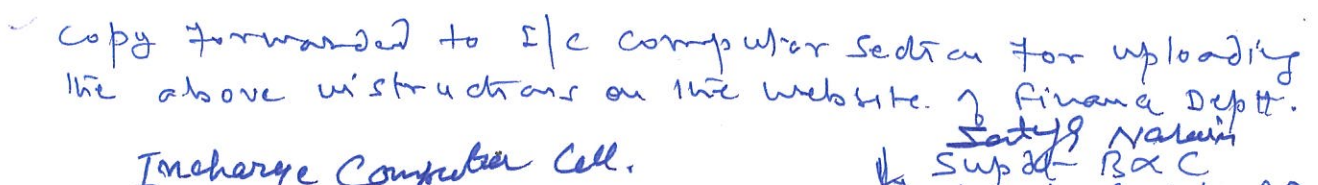 copy forwarded to I/c computer section for uploading
the above instructions on the website. of Finance Deptt.
Satya Narain
Incharge Computer Cell.
Supdt B&C